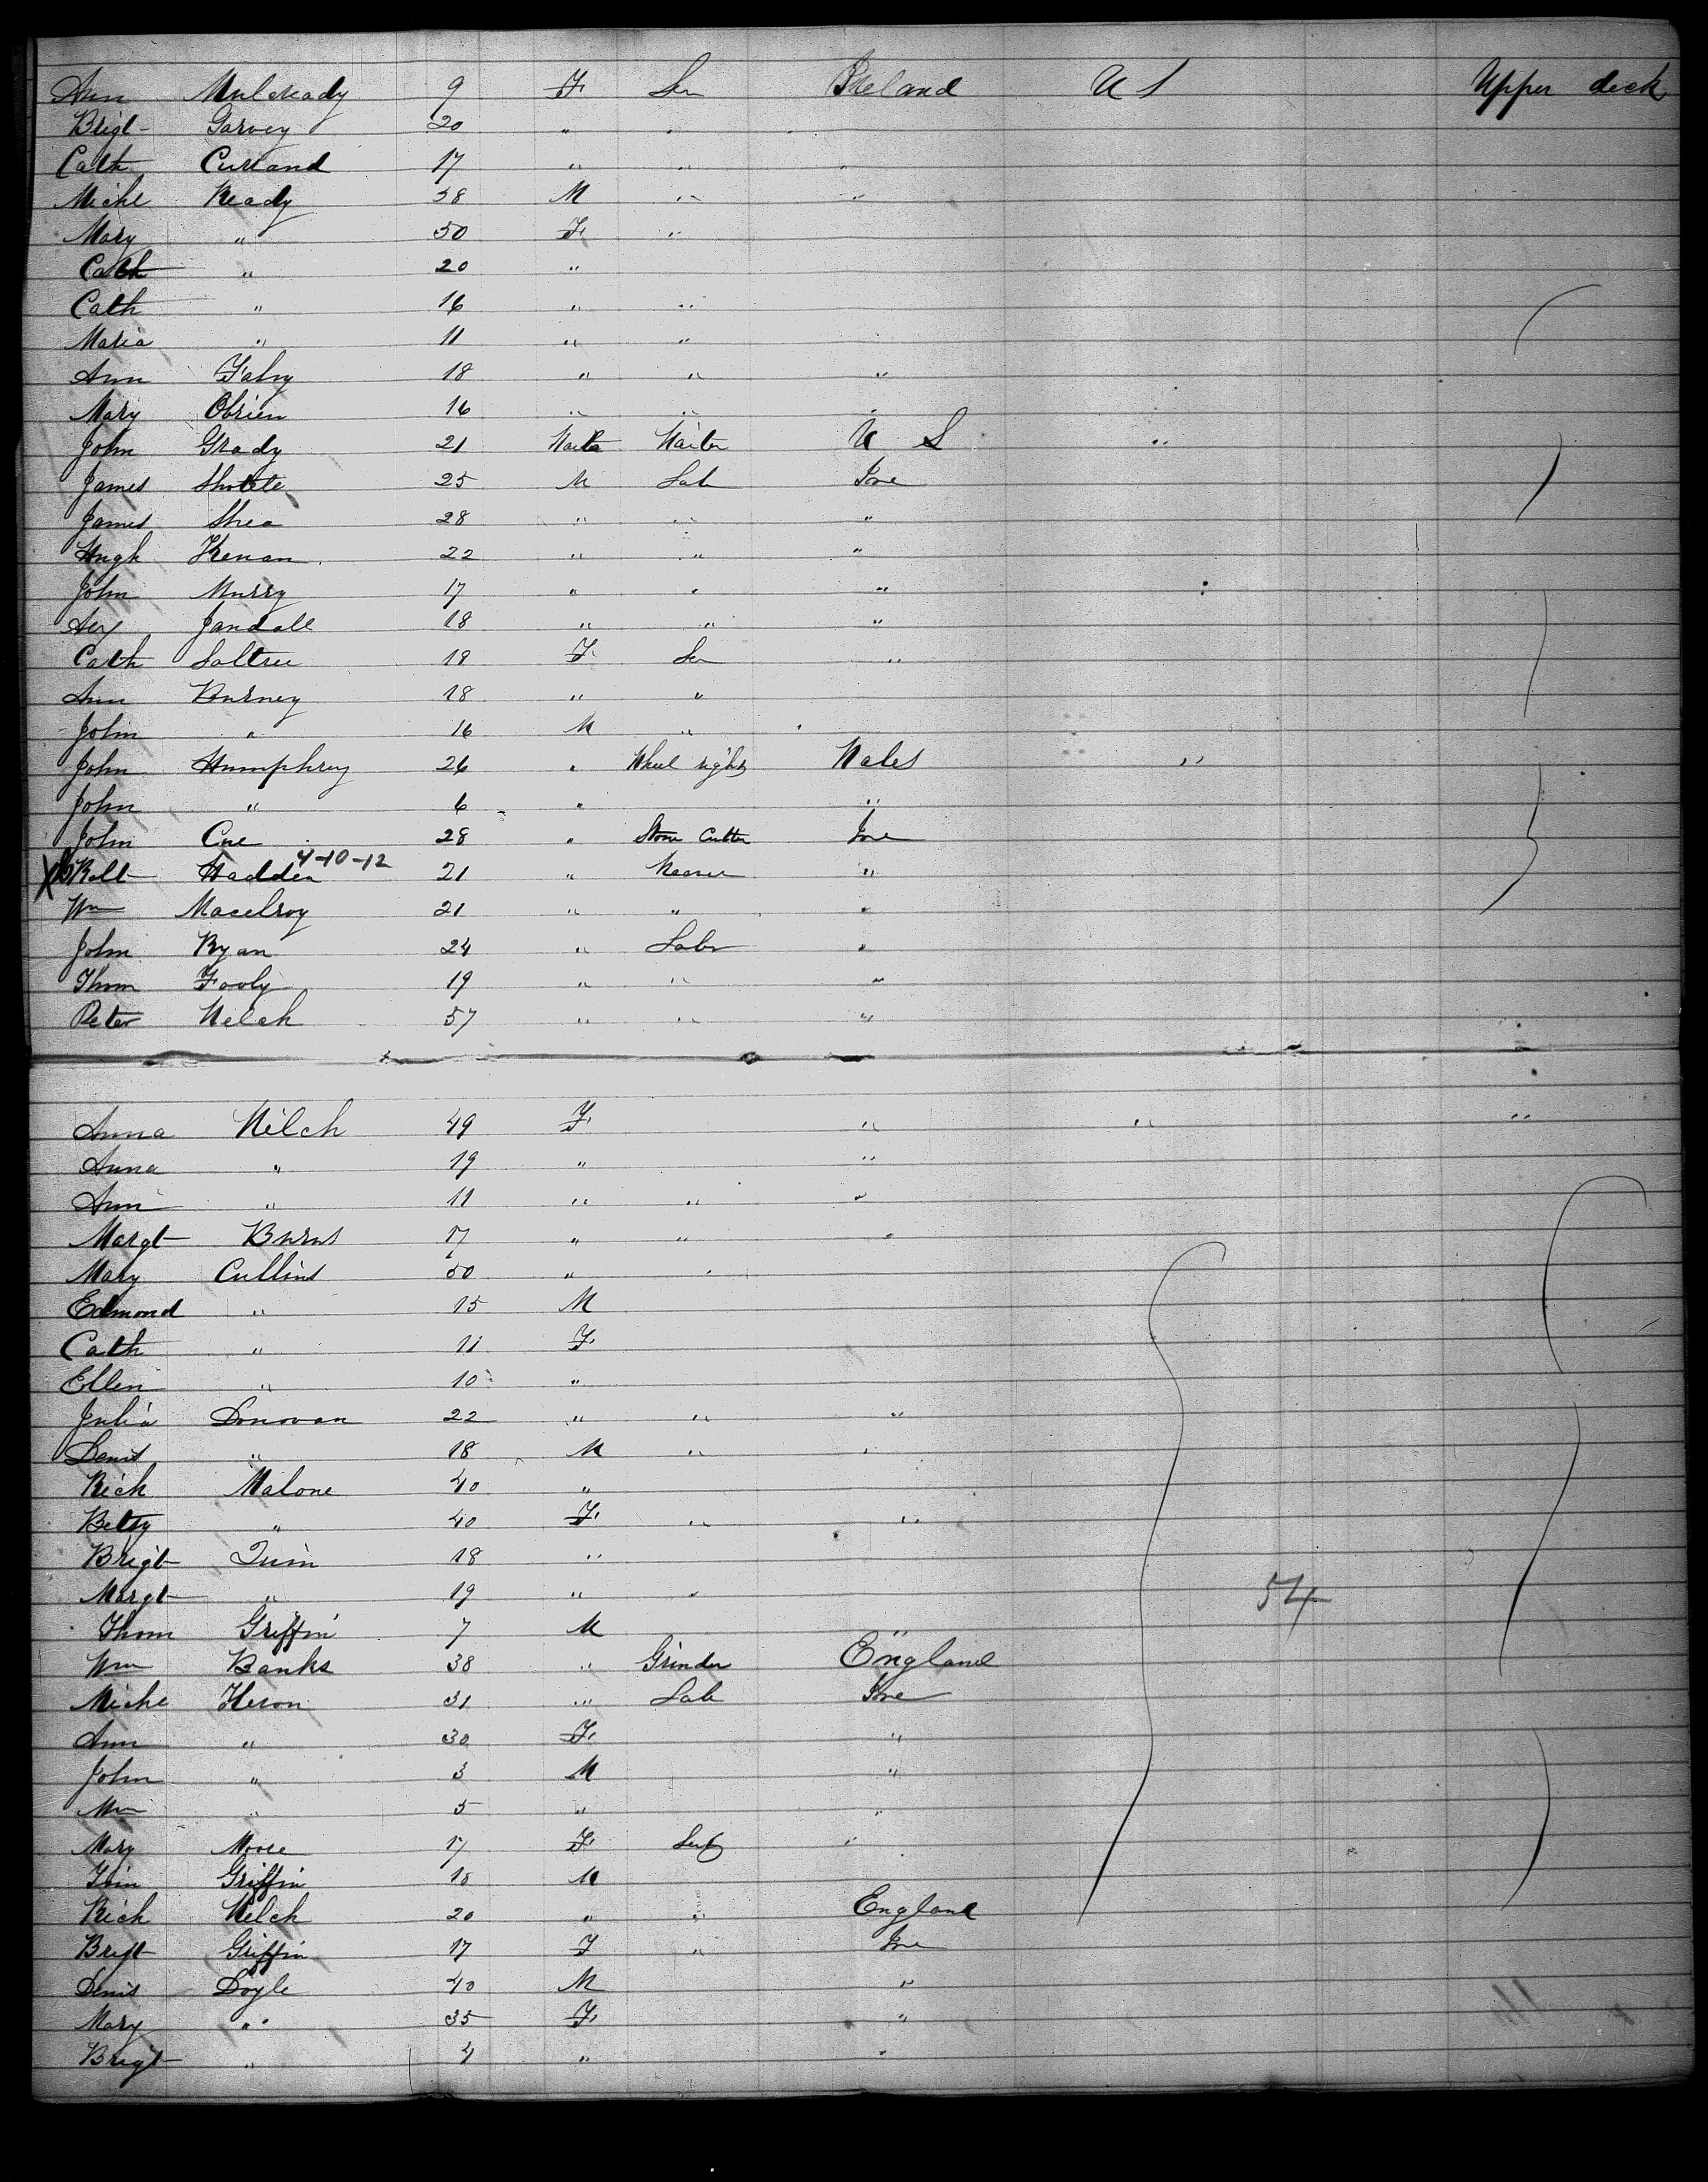 Ann Mulready 9 F Ser Ireland U S Upper deck
Brigt Garvey 20 " " "
Cath Curland 17 " " "
Michl Ready 38 M " "
Mary " 50 F "
Cath " 20 "
Cath " 16 " "
Maria " 11 " "
Ann Fahy 18 " " "
Mary Obrien 16 " " "
John Grady 21 Waiter Waiter U S "
James Shottle 25 M Lab Ire
James Shea 28 " " "
Hugh Kenan 22 " " "
John Murry 17 " " "
Alex Jandall 18 " " "
Cath Saltree 18 F Ser "
Ann Burney 18 " "
John " 16 M " "
John Humphrey 26 " Wheel right Wales "
John " 6 " "
John Cue 28 " Stone Cutter Ire
X Robt Hadden 4-10-12 21 " Weaver "
Wm Macelroy 21 " " "
John Ryan 24 " Labr "
Thom Fooly 19 " " "
Peter Welch 57 " " "
Anna Welch 49 F " " "
Anna " 19 " "
Ann " 11 " " "
Margt Burns 17 " " "
Mary Cullins 50 " "
Edmond " 15 M
Cath " 11 F
Ellen " 10 "
Julia Donovan 22 " " "
Denis " 18 M " "
Rich Malone 40 "
Betsy " 40 F " "
Brigt Quin 18 "
Margt " 19 " " 54
Thom Griffin 7 M "
Wm Banks 38 " Grinder England
Miche Heron 31 " Lab Ire
Ann " 30 F "
John " 3 M "
Wm " 5 " "
Mary Moore 17 F "
Griffin 18 M
Rich Welch 20 " " England
Brigt Griffin 17 F " Ire
Denis Doyle 40 M "
Mary " 35 F "
Brigt " 4 " "